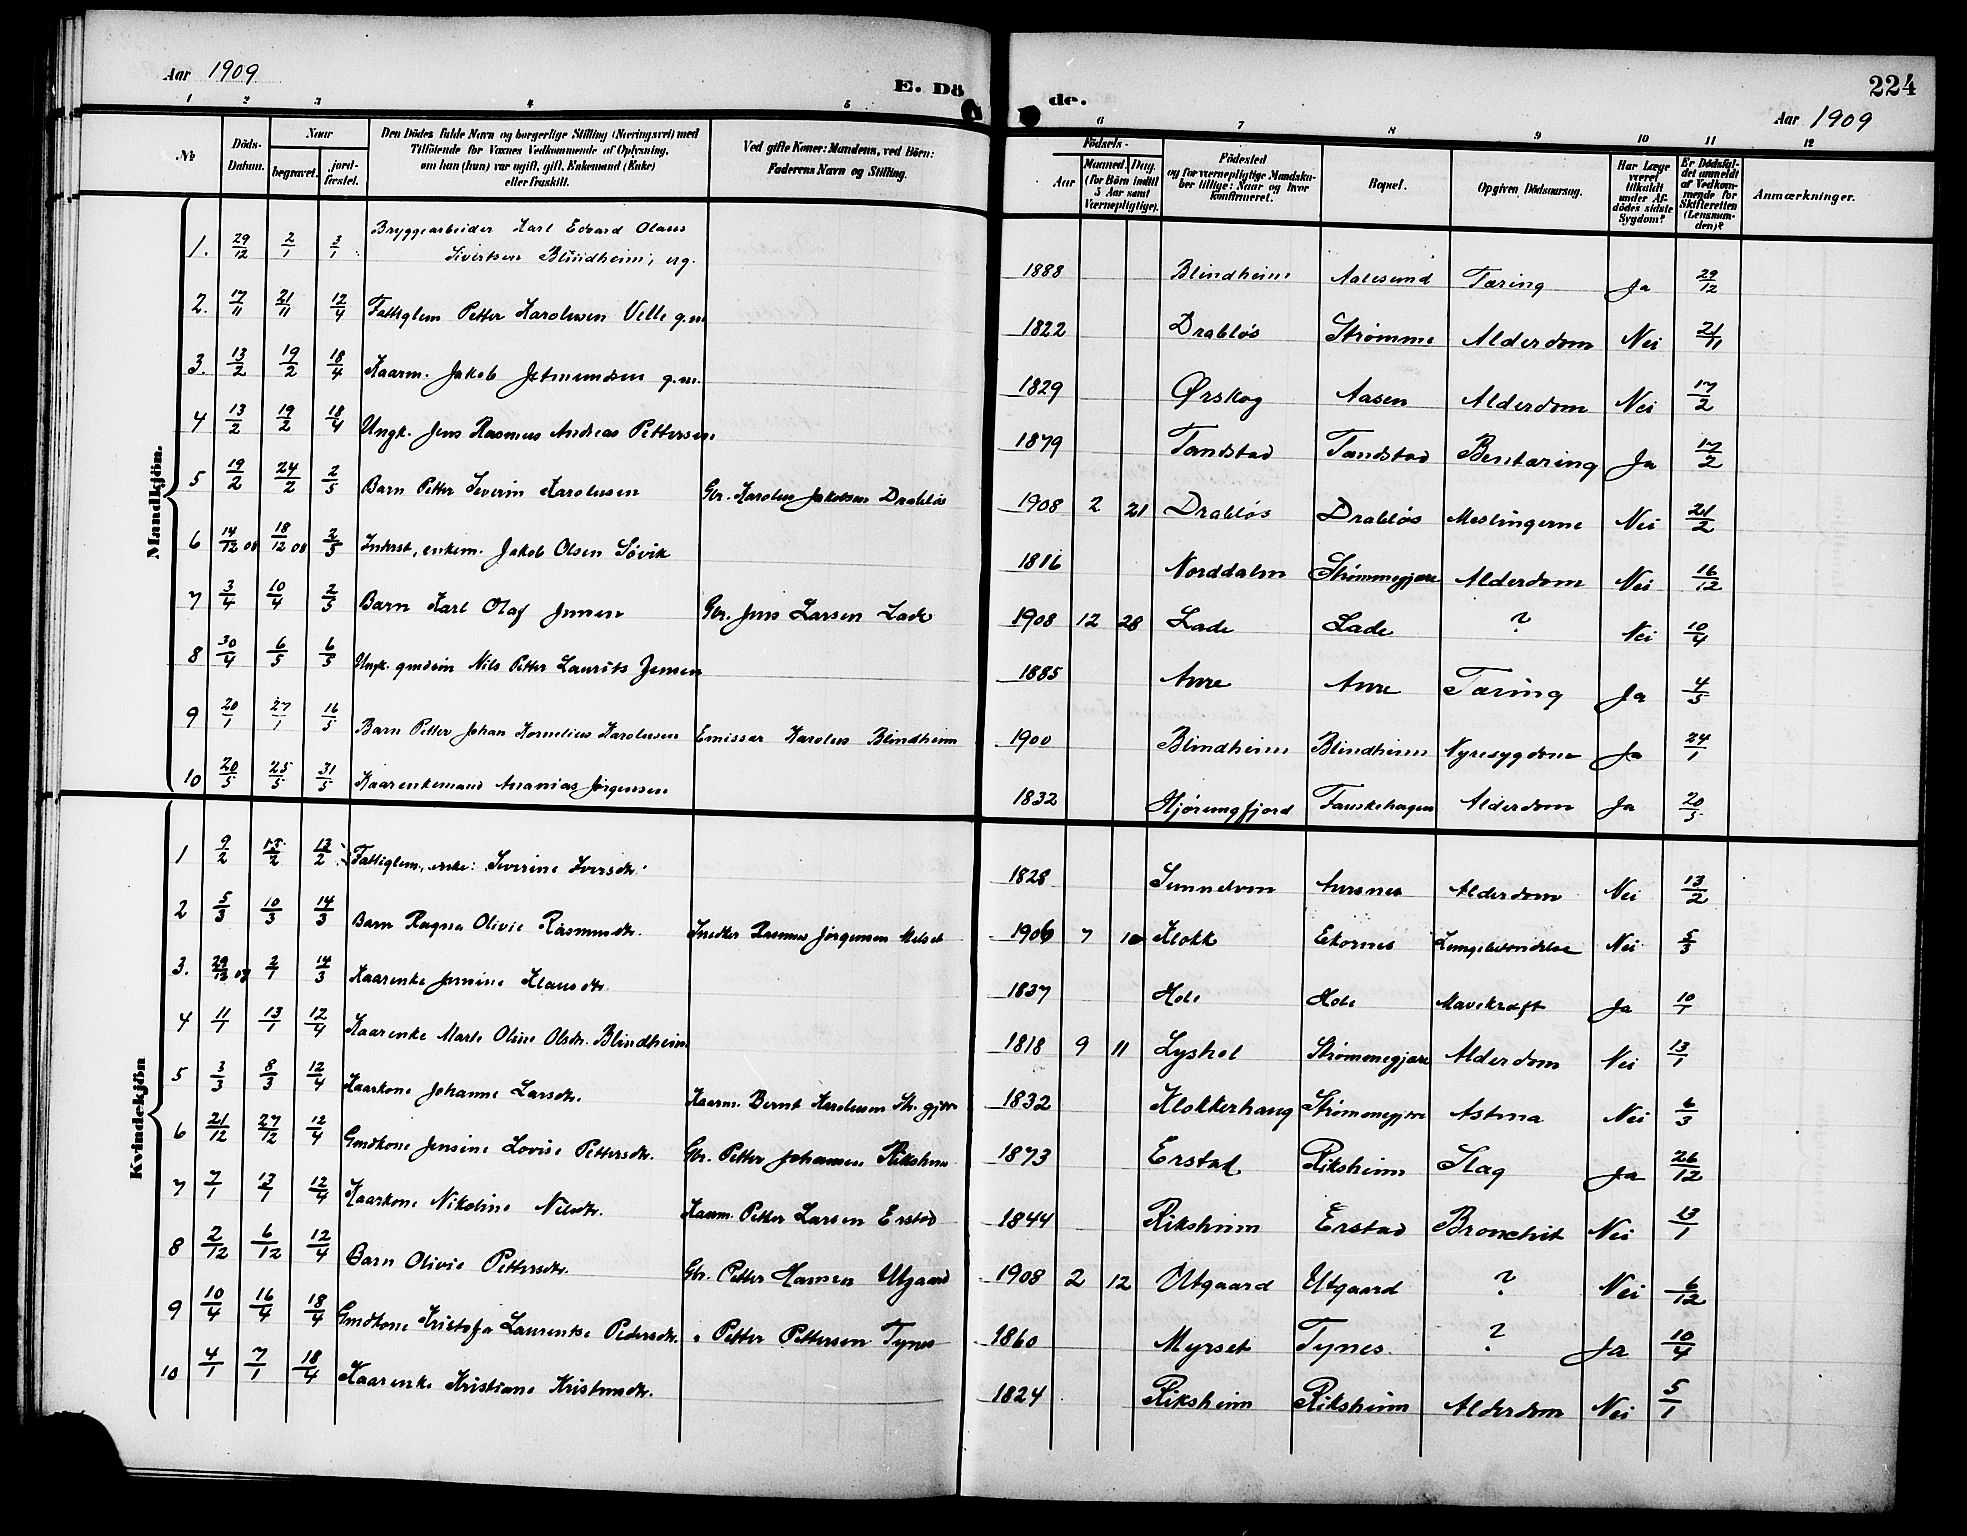 Aar 1909
E. Dö
de.
224
Aar 1909
1 2 3 4 5 6 7 8 9 10 11 12
No
Döds-Datum.
Naar
begravet.
jord-fæstet.
Den Dödes fulde Navn og borgerlige Stilling (Næringsvei) med
Tilföiende for Voxnes Vedkommende af Oplysning,
om han (hun) var ugift, gift, Enkemand (Enke)
eller fraskilt.
Ved gifte Koner: Mandens, ved Börn:
Faderens Navn og Stilling.
Födsels-
Aar
Maaned. Dag.
(for Börn indtil
5 Aar samt
Værnepligtige).
Födested
og for værnepligtige Mandska-
ber tillige: Naar og hvor
konfirmeret.
Bopæl.
Opgiven Dödsaarsag.
Har Læge
været
tilkaldt
under Af-
dödes sidste
Sygdom?
Er Dödsfal-
det anmeldt
af Vedkom-
mende for
Skifteretten
(Lensman-
den)?
Anmærkninger.
Mandkjön.
1. 29/12 2/1 3/1 Bryggearbeider Karl Edvard Olaus
Sivertsen Blindheim, ug. 1888 Blindheim Aalesund Tæring Ja 29/12
2. 17/11 21/11 12/4 Fattiglem Petter Karolusen Velle g.m. 1822 Drabløs Strømme Alderdom Nei 21/11
3. 13/2 19/2 18/4 Kaarm. Jakob Jetmundsen g.m. 1829 Ørskog Aasen Alderdom Nei 17/2
4 13/2 19/2 18/4 Ungk. Jens Rasmus Andreas Pettersen 1879 Tandstad Tandstad Bentæring Ja 17/2
5 19/2 24/2 2/5 Barn Petter Severin Karolusen Gbr. Karolus Jakobsen Drabløs 1908 2 21 Drabløs Drabløs Meslingerne Nei 21/2
6 14/12 08 18/12 08 2/5 Inderst, enkem. Jakob Olsen Søvik 1816 Norddalen Strømmegjære Alderdom Nei 16/12
7 3/4 10/4 2/5 Barn Karl Olaf Jensen Gbr. Jens Larsen Lade 1908 12 28 Lade Lade ? Nei 10/4
8 30/4 6/5 6/5 Ungk. gmdsøn Nils Petter Laurits Jensen 1885 Aure Aure Tæring Ja 4/5
9 20/1 27/1 16/5 Barn Petter Johan Kornelius Karolusen Emissær Karolus Blindheim 1900 Blindheim Blindheim Nyresygdom Ja 24/1
10 20/5 25/5 31/5 Kaarenkemand Ananias Jørgensen 1832 Hjørungfjord Fauskehagen Alderdom Ja 20/5
Kvindekjön
1 9/2 15/2 15/2 Fattiglem, enke: Severine Iversdtr. 1828 Sunnelven Aursnes Alderdom Nei 13/2
2 5/3 10/3 14/3 Barn Ragna Olivie Rasmusdtr. Snedker Rasmus Jørgensen Melset 1906 7 10 Klokk Ekornes Lungebetændelse Nei 5/3
3. 29/12 08 2/1 14/3 Kaarenke Jensine Klausdtr. 1837 Hole Hole Mavekræft Ja 10/1
4 11/1 13/1 12/4 Kaarenke Marte Oline Olsdtr. Blindheim 1818 9 11 Lyshol Strømmegjære Alderdom Nei 13/1
5 3/3 8/3 12/4 Kaarkone Johanne Larsdtr. Kaarm. Bernt Karolusen Str. gjære 1832 Klokkerhaug Strømmegjære Astma Nei 6/3
6 21/12 27/12 12/4 Gmdkone Jensine Lovise Pettersdtr. Gbr. Petter Johansen Riksheim 1873 Erstad Riksheim Slag Ja 26/12
7 7/1 13/1 12/4 Kaarkone Nikoline Nilsdtr. Kaarm. Petter Larsen Erstad 1844 Riksheim Erstad Bronchit Nei 13/1
8 2/12 6/12 12/4 Barn Olivie Pettersdtr. Gbr. Petter Hansen Utgaard 1908 2 12 Utgaard Utgaard ? Nei 6/12
9 10/4 16/4 18/4 Gmdkone Kristofa Laurentse Pedersdtr. " Petter Pettersen Tynes 1860 Myrset Tynes. ? Ja 10/4
10 4/1 7/1 18/4 Kaarenke Kristiane Kristensdtr. 1824 Riksheim Riksheim Alderdom Nei 5/1